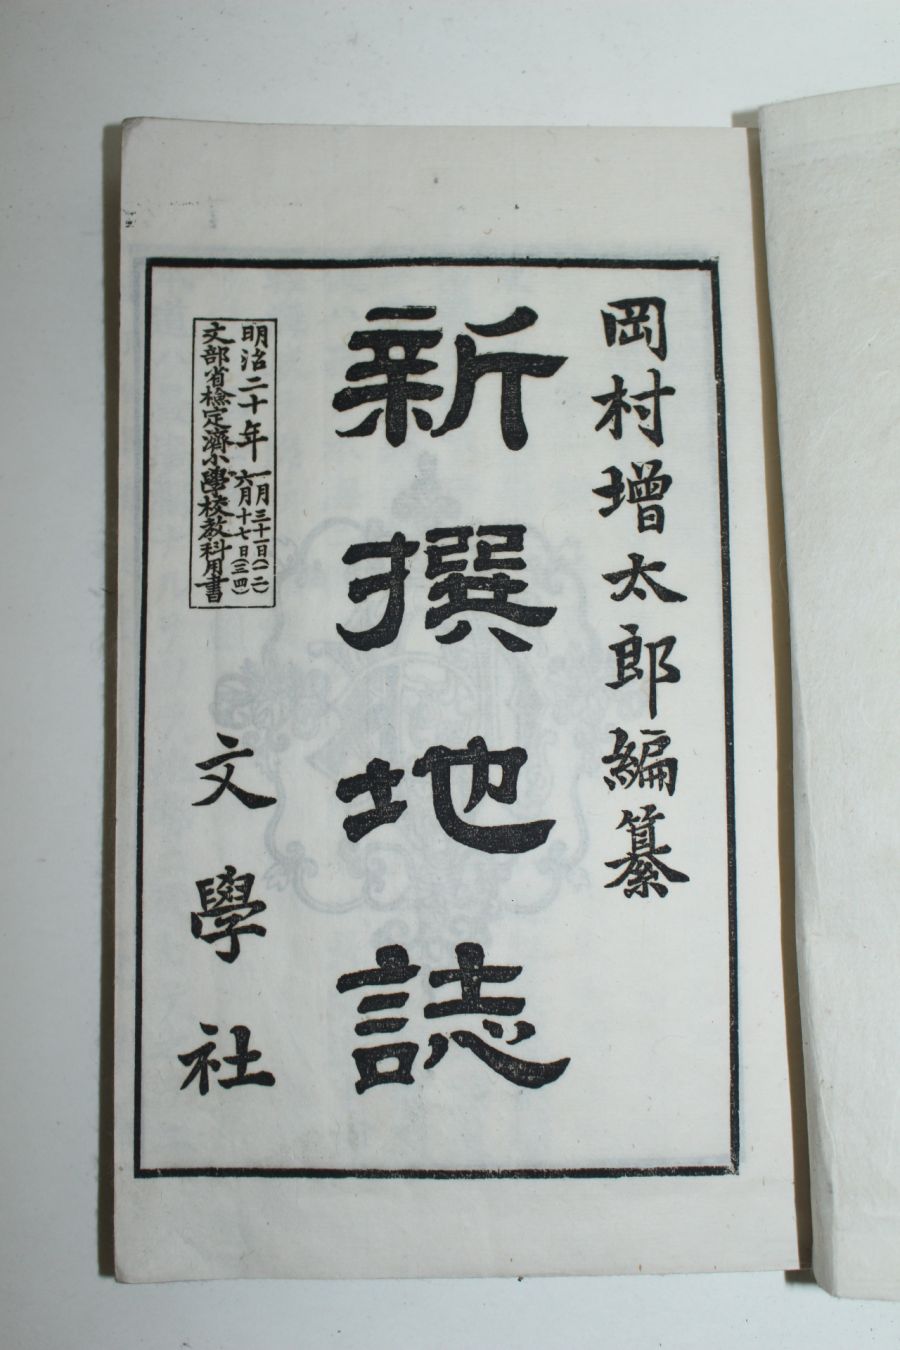 岡村增太郎編纂
新撰地誌
明治二十年
一月三十一日(一二)
六月十七日(三四)
文部省檢定濟小學校教科用書
文學社